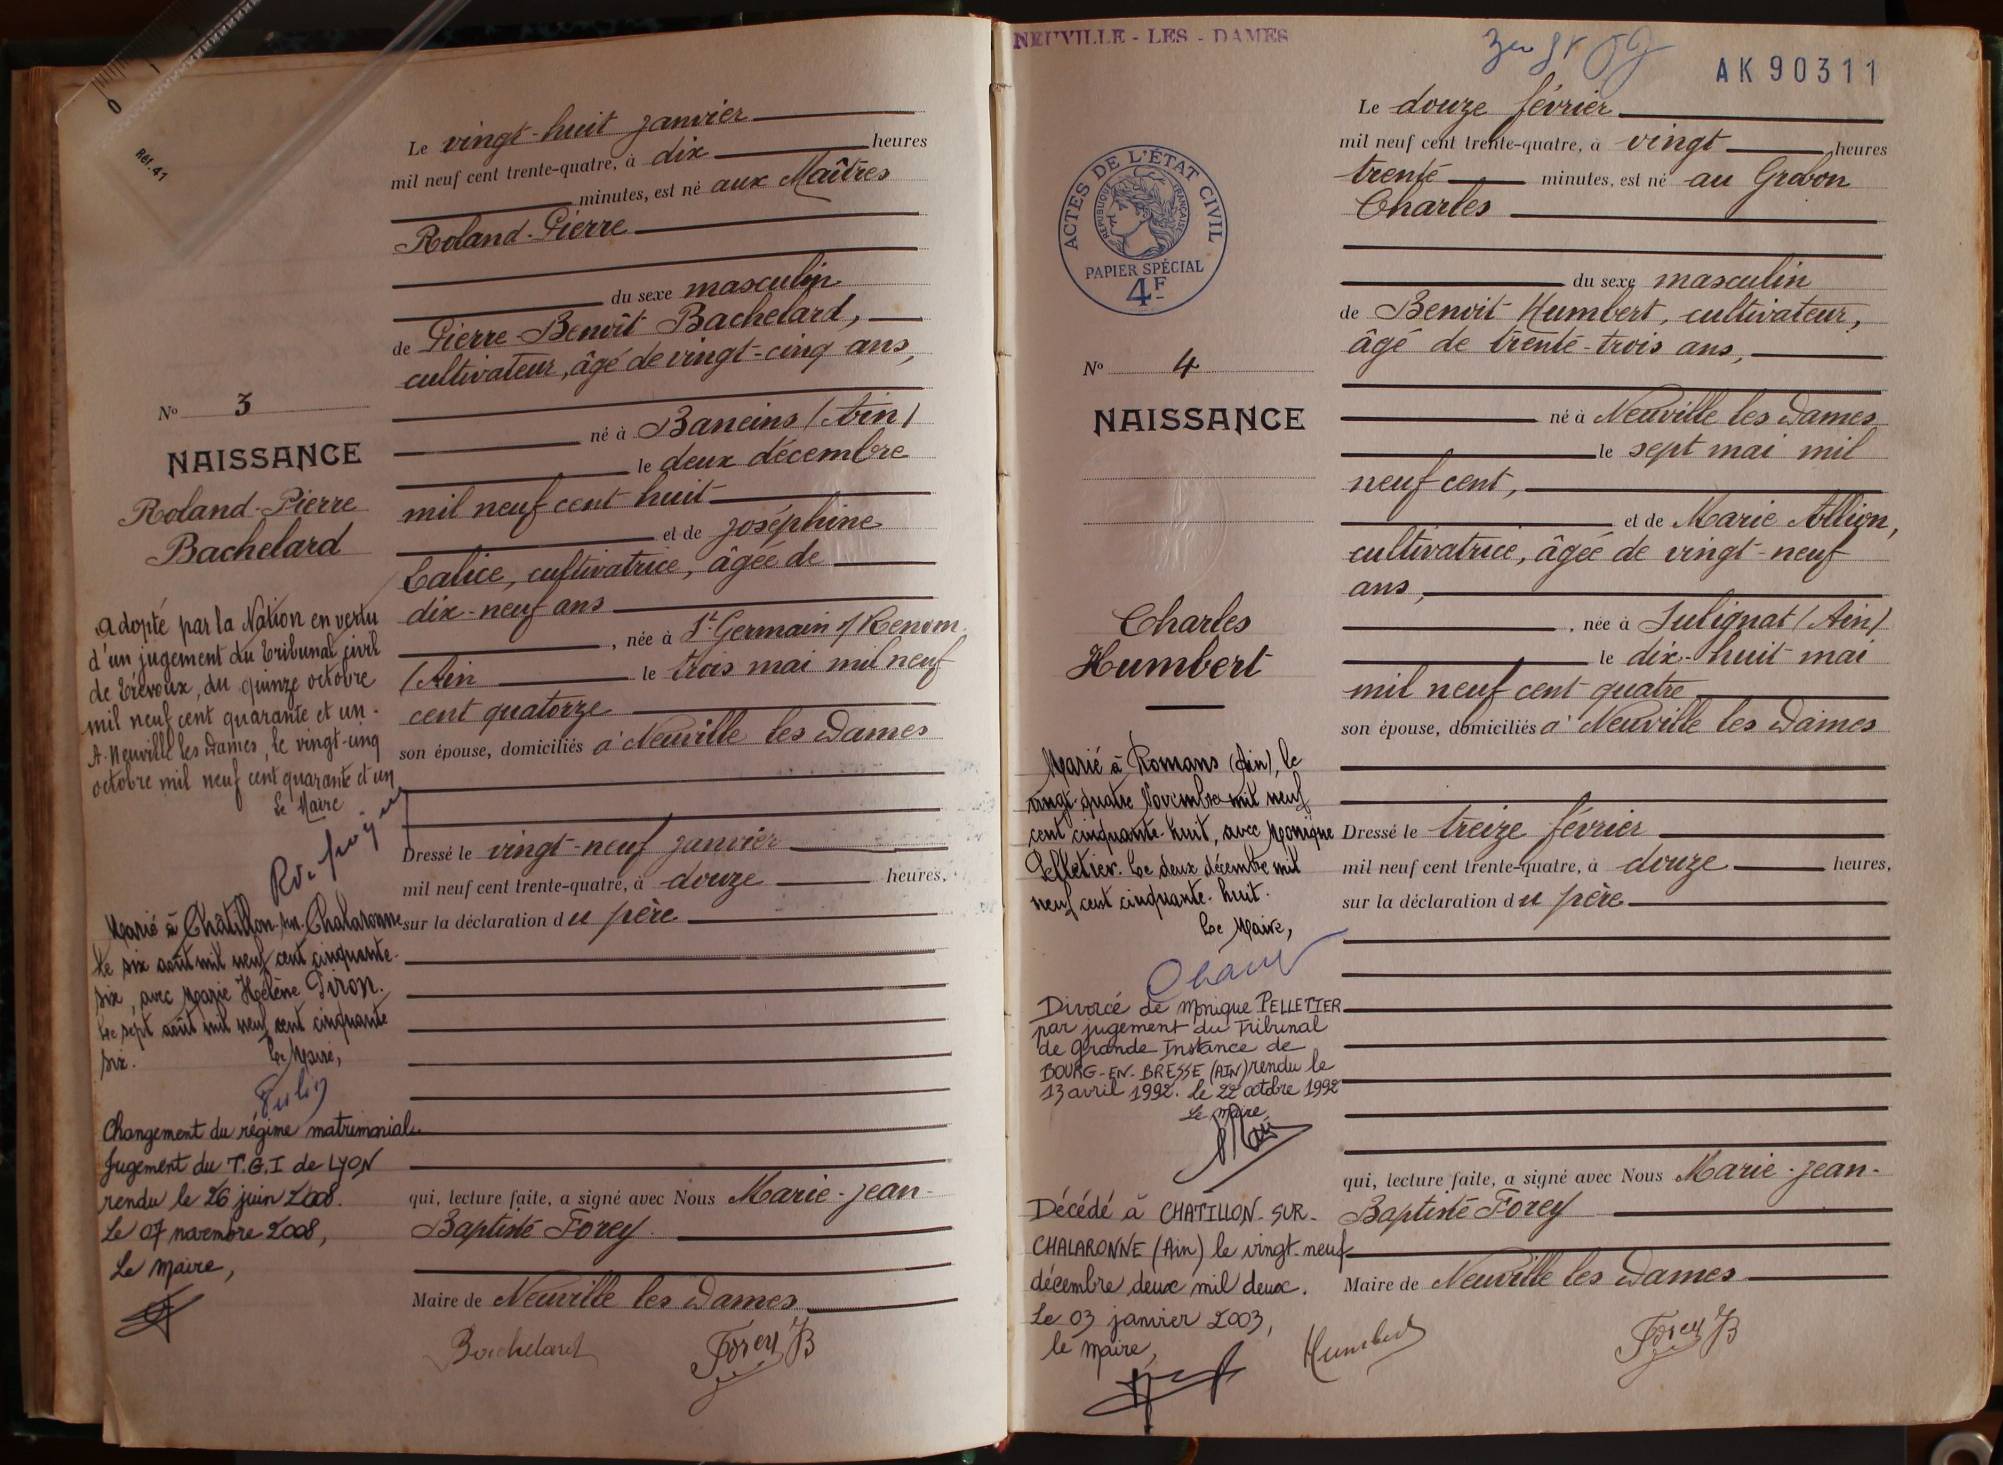 0 1
Réf. 41
Le vingt-huit janvier
mil neuf cent trente-quatre, à dix heures
minutes, est né aux Maîtres
Roland-Pierre
du sexe masculin
de Pierre-Benoît Bachelard,
cultivateur, âgé de vingt-cinq ans,
né à Baneins (Ain)
le deux décembre
mil neuf cent huit
et de joséphine
Calice, cultivatrice, âgée de
dix-neuf ans
, née à St Germain s/ Renom
(Ain le trois mai mil neuf
cent quatorze
son épouse, domiciliés à Neuville les Dames
Dressé le vingt-neuf janvier
mil neuf cent trente-quatre, à douze heures,
sur la déclaration du père
qui, lecture faite, a signé avec Nous Marie-jean-
Baptiste Forey
Maire de Neuville les Dames
Bachelard Forey JB
No 3
NAISSANCE
Roland-Pierre
Bachelard
Adopté par la Nation en vertu
d'un jugement du Tribunal civil
de Trévoux, du quinze octobre
mil neuf cent quarante et un.
A Neuville les Dames, le vingt-cinq
octobre mil neuf cent quarante et un
Le Maire
Marié à Châtillon-sur-Chalaronne
le six août mil neuf cent cinquante-
six, avec Marie Hélène Piron.
Le sept août mil neuf cent cinquante
six. Le Maire,
Changement du régime matrimonial.
Jugement du T.G.I de LYON
rendu le 26 juin 2008.
Le 07 novembre 2008,
Le Maire,
NEUVILLE - LES - DAMES
AK90311
ACTES DE L'ÉTAT CIVIL
RÉPUBLIQUE FRANÇAISE
PAPIER SPÉCIAL
4F
No 4
NAISSANCE
Charles
Humbert
Marié à Romans (Ain), le
vingt-quatre Novembre mil neuf
cent cinquante-huit, avec Monique
Pelletier. Le deux décembre mil
neuf cent cinquante-huit.
Le Maire,
Divorcé de Monique PELLETIER
par jugement du Tribunal
de Grande Instance de
BOURG-EN-BRESSE (AIN) rendu le
13 avril 1992. le 22 octobre 1992
Le Maire
Décédé à CHATILLON-SUR-
CHALARONNE (Ain) le vingt-neuf
décembre deux mil deux.
Le 03 janvier 2003,
le Maire,
Le douze février
mil neuf cent trente-quatre, à vingt heures
trente minutes, est né au Grabon
Charles
du sexe masculin
de Benoit Humbert, cultivateur,
âgé de trente-trois ans,
né à Neuville les Dames
le sept mai mil
neuf cent,
et de Marie Allion,
cultivatrice, âgée de vingt-neuf
ans,
, née à Sulignat (Ain)
le dix-huit mai
mil neuf cent quatre
son épouse, domiciliés à Neuville les Dames
Dressé le treize février
mil neuf cent trente-quatre, à douze heures,
sur la déclaration du père
qui, lecture faite, a signé avec Nous Marie-jean-
Baptiste Forey
Maire de Neuville les Dames
Humbert Forey JB